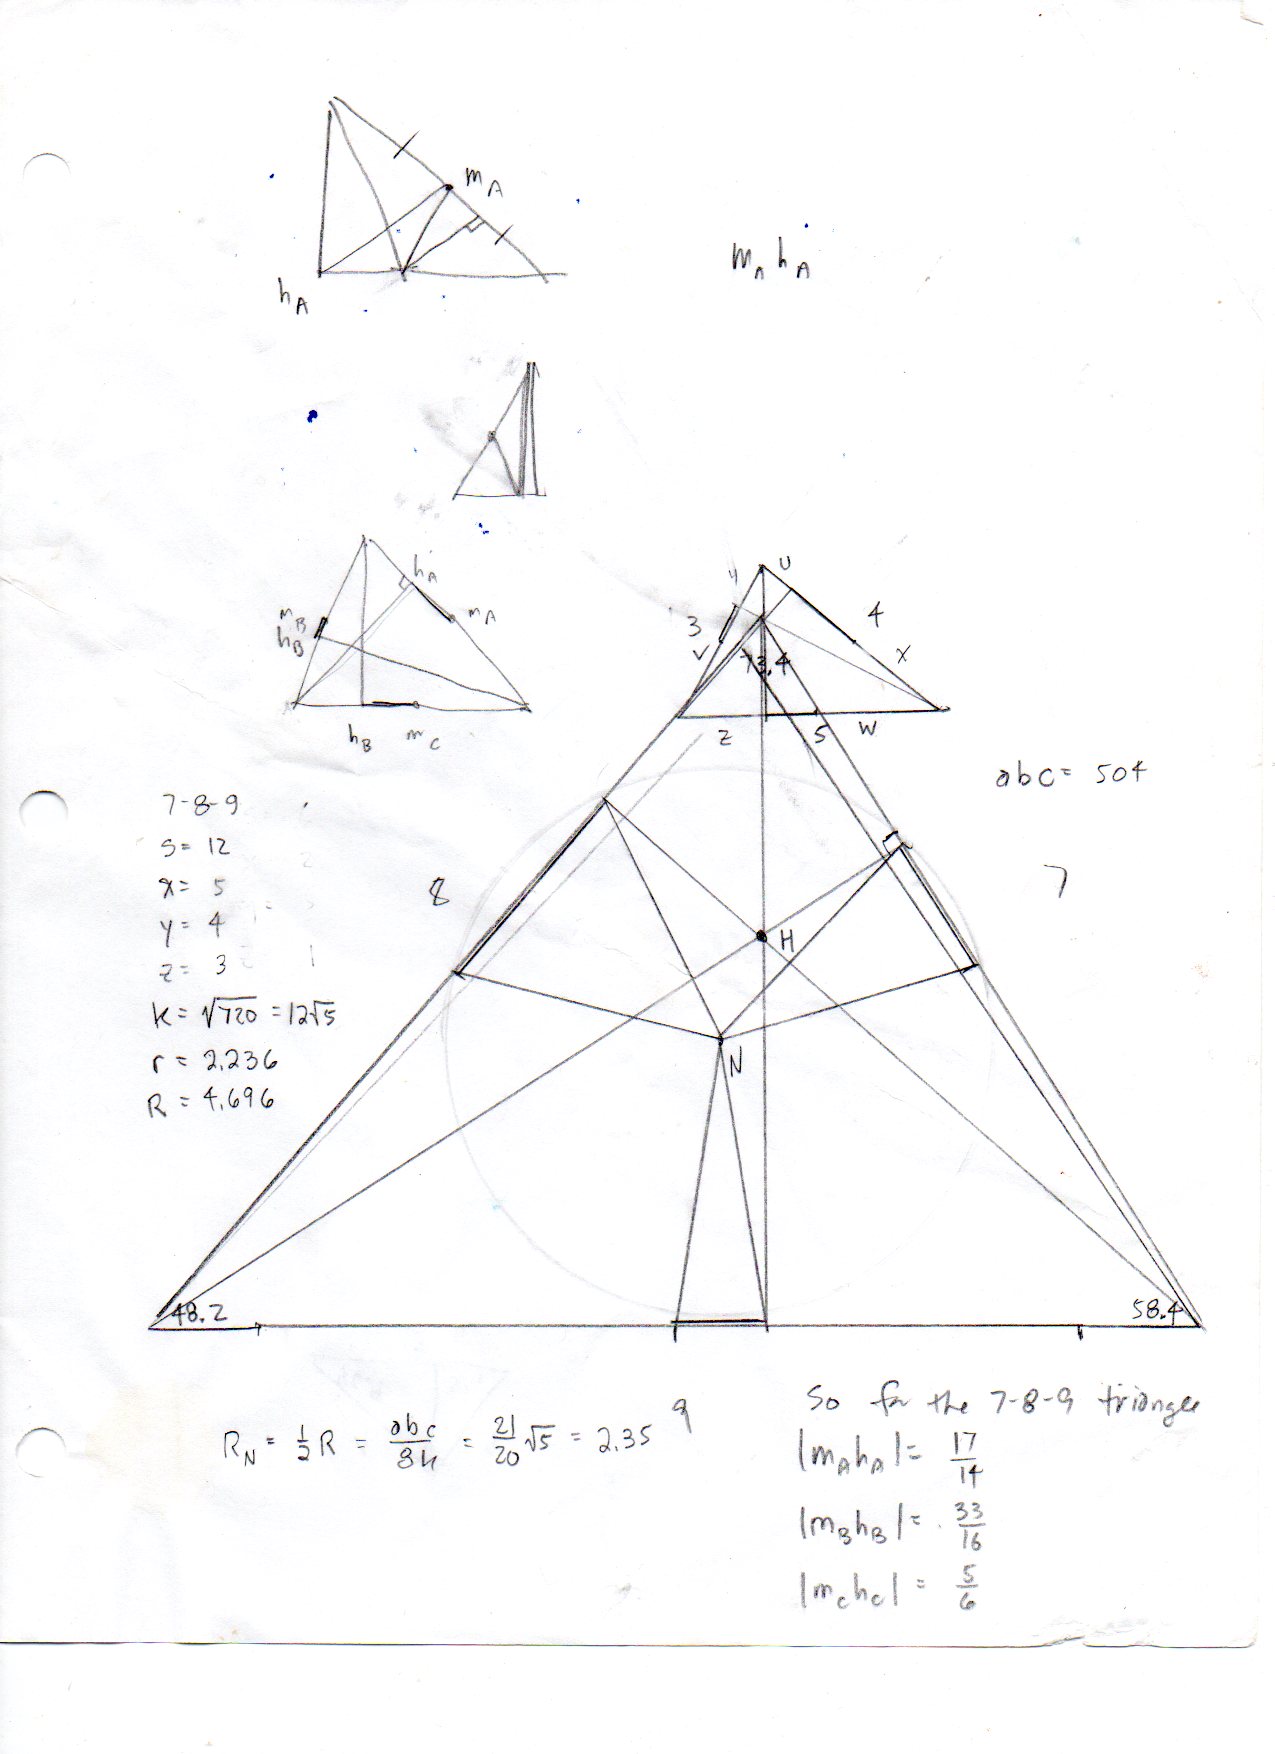 mA
hA
mA hA
hA
mB
hB
mA
hB mC
y U
3 4
V X
73.4
Z 5 W
abc= 504
7-8-9
S= 12
x= 5
y= 4
z= 3
K= √720 = 12√5
r= 2.236
R= 4.696
8
7
H
N
48.2
58.4
9
RN = 1/2 R = abc/8K = 21/20 √5 = 2.35
So for the 7-8-9 triangle
|mAhA| = 17/14
|mBhB| = 33/16
|mChC| = 5/6